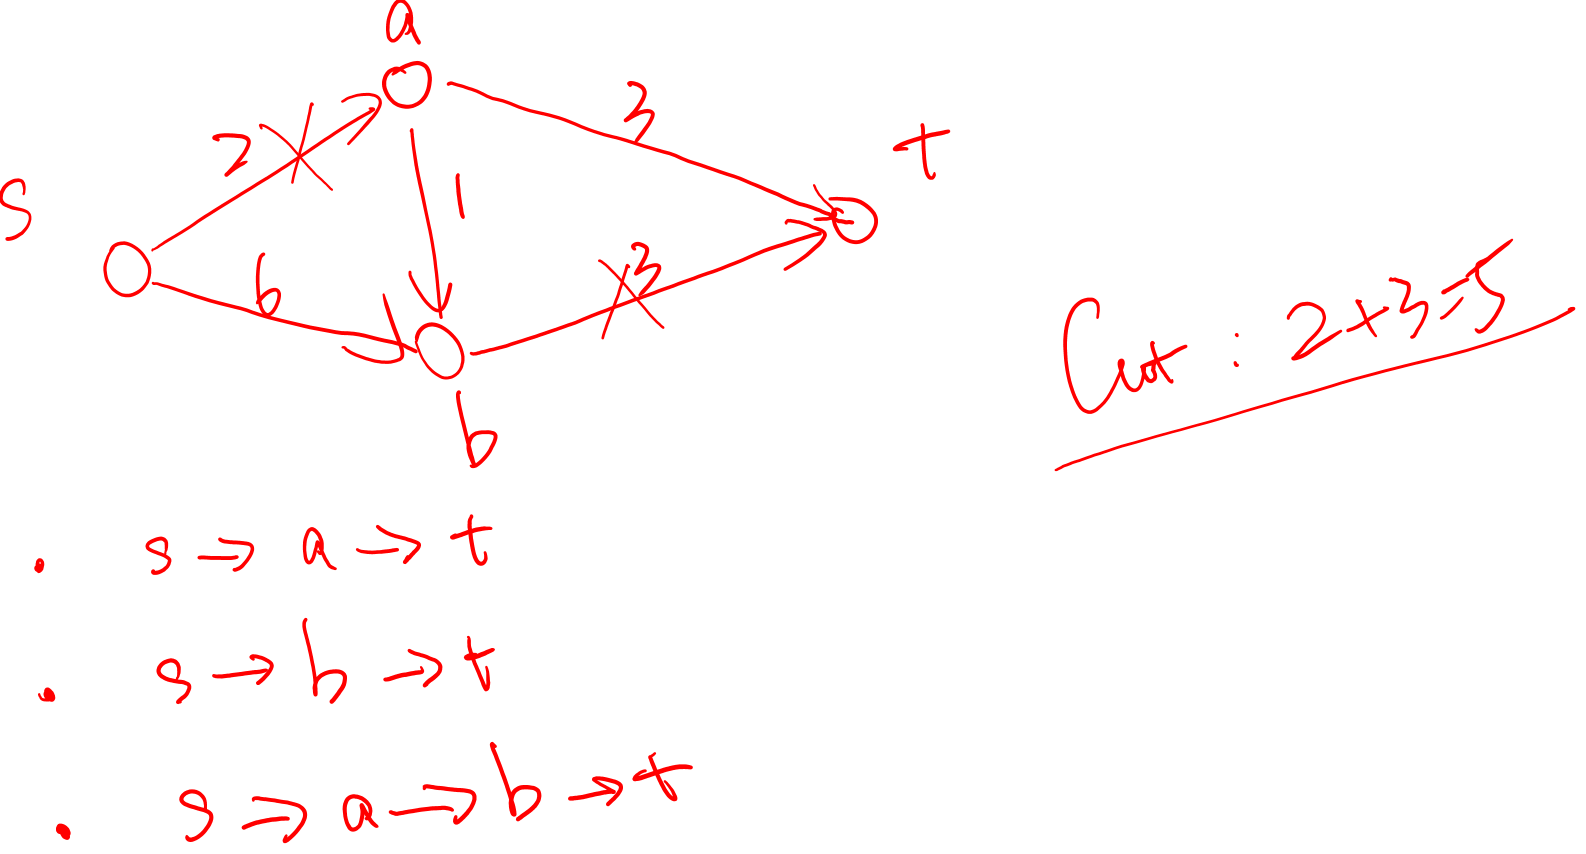 a
2
3
t
s
1
6
3
b
Cut : 2+3=5
• s → a → t
• s → b → t
• s → a → b → t